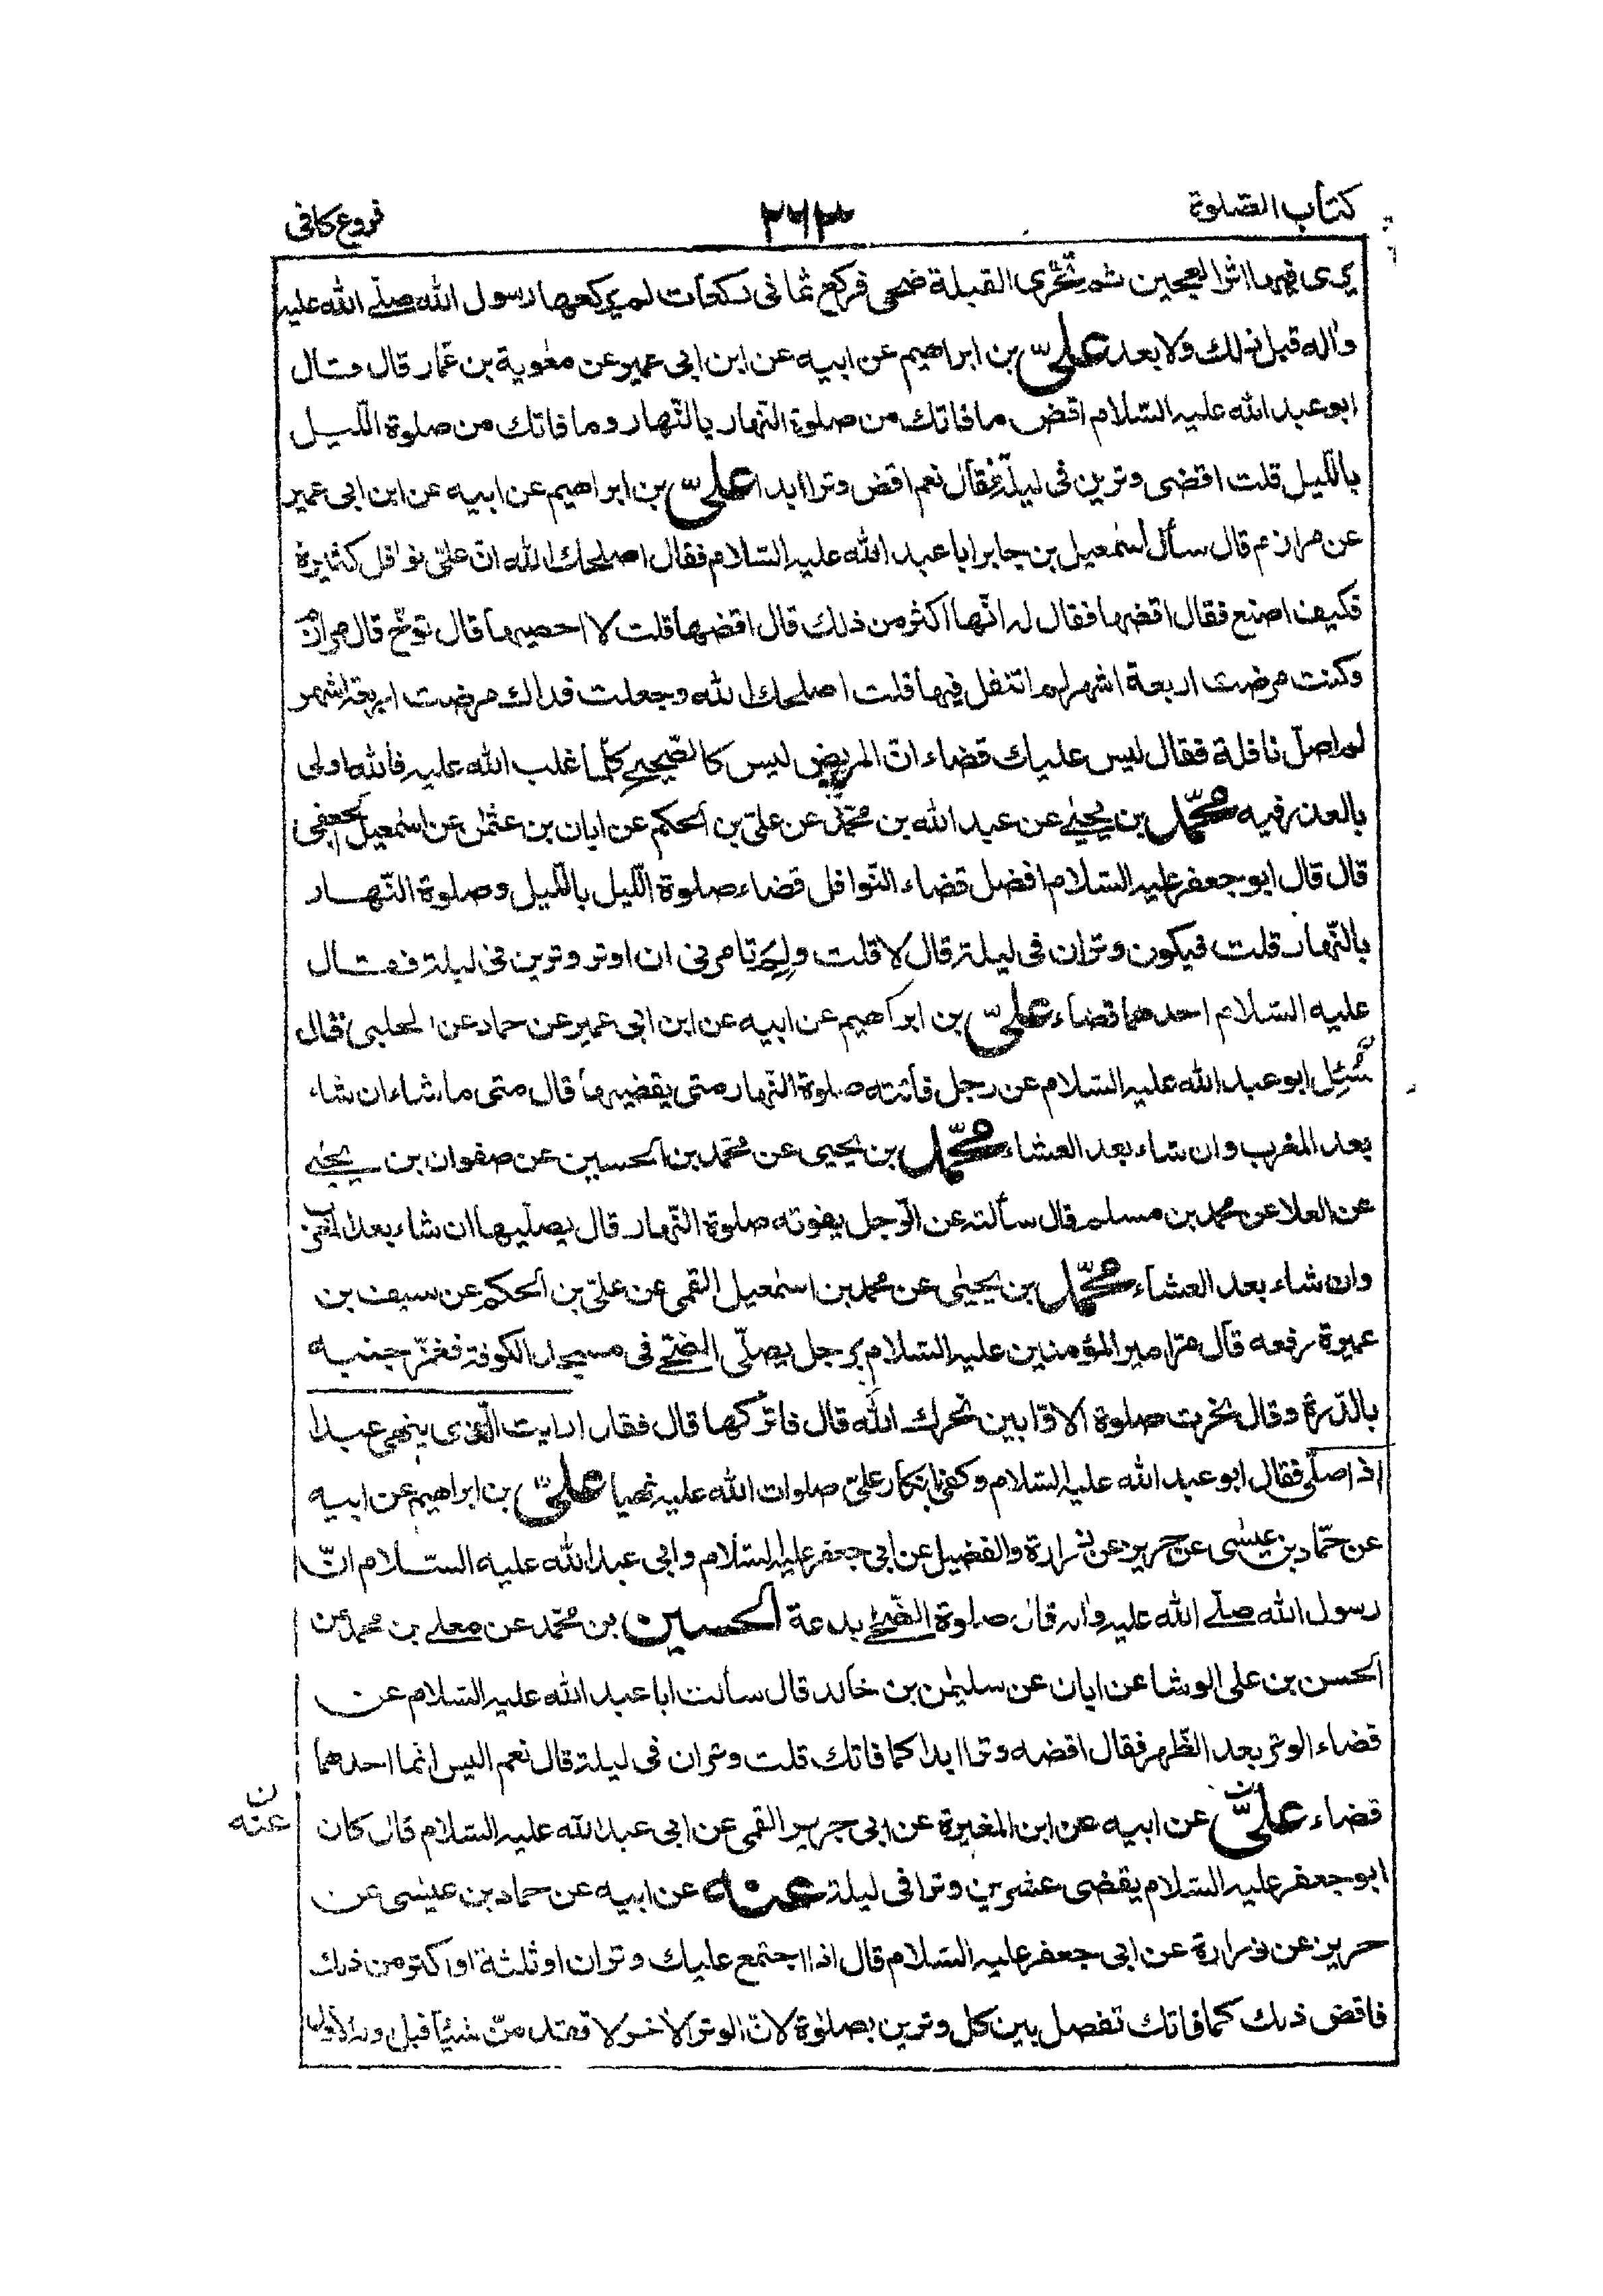 كتاب الصلوة ٢٦٣ فروع كافى
يرى فيها اثر العجين ثم تحرى القبلة ضحى فركع ثمانى ركعات لم يركعها رسول الله صلى الله عليه
واله قبل ذلك ولا بعد على بن ابراهيم عن ابيه عن ابن ابى عمير عن معوية بن عمار قال قال
ابو عبد الله عليه السلام اقض ما فاتك من صلوة النهار بالنهار وما فاتك من صلوة الليل
بالليل قلت اقضى وترين فى ليلة فقال نعم اقض وترا ابدا على بن ابراهيم عن ابيه عن ابن ابى عمير
عن مرازم قال سأل اسمعيل بن جابر ابا عبد الله عليه السلام فقال اصلحك الله ان على نوافل كثيرة
فكيف اصنع فقال اقضها فقال له انها اكثر من ذلك قال اقضها قلت لا احصيها قال توخ قال مرازم
وكنت مرضت اربعة اشهر لم اتنفل فيها قلت اصلحك الله وجعلت فداك مرضت اربعة اشهر
لم اصل نافلة فقال ليس عليك قضاء ان المريض ليس كالصحيح كلما غلب الله عليه فالله اولى
بالعذر فيه محمد بن يحيى عن عبد الله بن محمد عن على بن الحكم عن ابان بن عثمن عن اسمعيل الجعفى
قال قال ابو جعفر عليه السلام افضل قضاء النوافل قضاء صلوة الليل بالليل وصلوة النهار
بالنهار قلت فيكون وتران فى ليلة قال لا قلت ولم تامرنى ان اوتر وترين فى ليلة فقال
عليه السلام احدهما قضاء على بن ابراهيم عن ابيه عن ابن ابى عمير عن حماد عن الحلبى قال
سئل ابو عبد الله عليه السلام عن رجل فاتته صلوة النهار متى يقضيها قال متى ما شاء ان شاء
بعد المغرب وان شاء بعد العشاء محمد بن يحيى عن محمد بن الحسين عن صفوان بن يحيى
عن العلا عن محمد بن مسلم قال سألته عن الرجل يفوته صلوة النهار قال يصليها ان شاء بعد المغرب
وان شاء بعد العشاء محمد بن يحيى عن محمد بن اسمعيل القمى عن على بن الحكم عن سيف بن
عميرة رفعه قال مر امير المؤمنين عليه السلام برجل يصلى الضحى فى مسجد الكوفة فغمز جنبه
بالدرة وقال نحرت صلوة الاوابين نحرك الله قال فاتركها قال فقال ارايت الذى ينهى عبدا
اذا صلى فقال ابو عبد الله عليه السلام وكفى بانكار على صلوات الله عليه نهيا على بن ابراهيم عن ابيه
عن حماد بن عيسى عن حريز عن زرارة والفضيل عن ابى جعفر عليه السلام وابى عبد الله عليه السلام ان
رسول الله صلى الله عليه واله قال صلوة الضحى بدعة الحسين بن محمد عن معلى بن محمد عن
الحسن بن على الوشا عن ابان عن سليمن بن خالد قال سالت ابا عبد الله عليه السلام عن
قضاء الوتر بعد الظهر فقال اقضه وترا ابدا كما فاتك قلت وتران فى ليلة قال نعم اليس انما احدهما
قضاء على عن ابيه عن ابن المغيرة عن ابى جرير القمى عن ابى عبد الله عليه السلام قال كان
عنه ن
ابو جعفر عليه السلام يقضى عشرين وترا فى ليلة عنه عن ابيه عن حماد بن عيسى عن
حريز عن زرارة عن ابى جعفر عليه السلام قال اذا اجتمع عليك وتران او ثلثة او اكثر من ذلك
فاقض ذلك كما فاتك تفصل بين كل وترين بصلوة لان الوتر الاخر لا تقدمن شيئا قبل اوله الاول